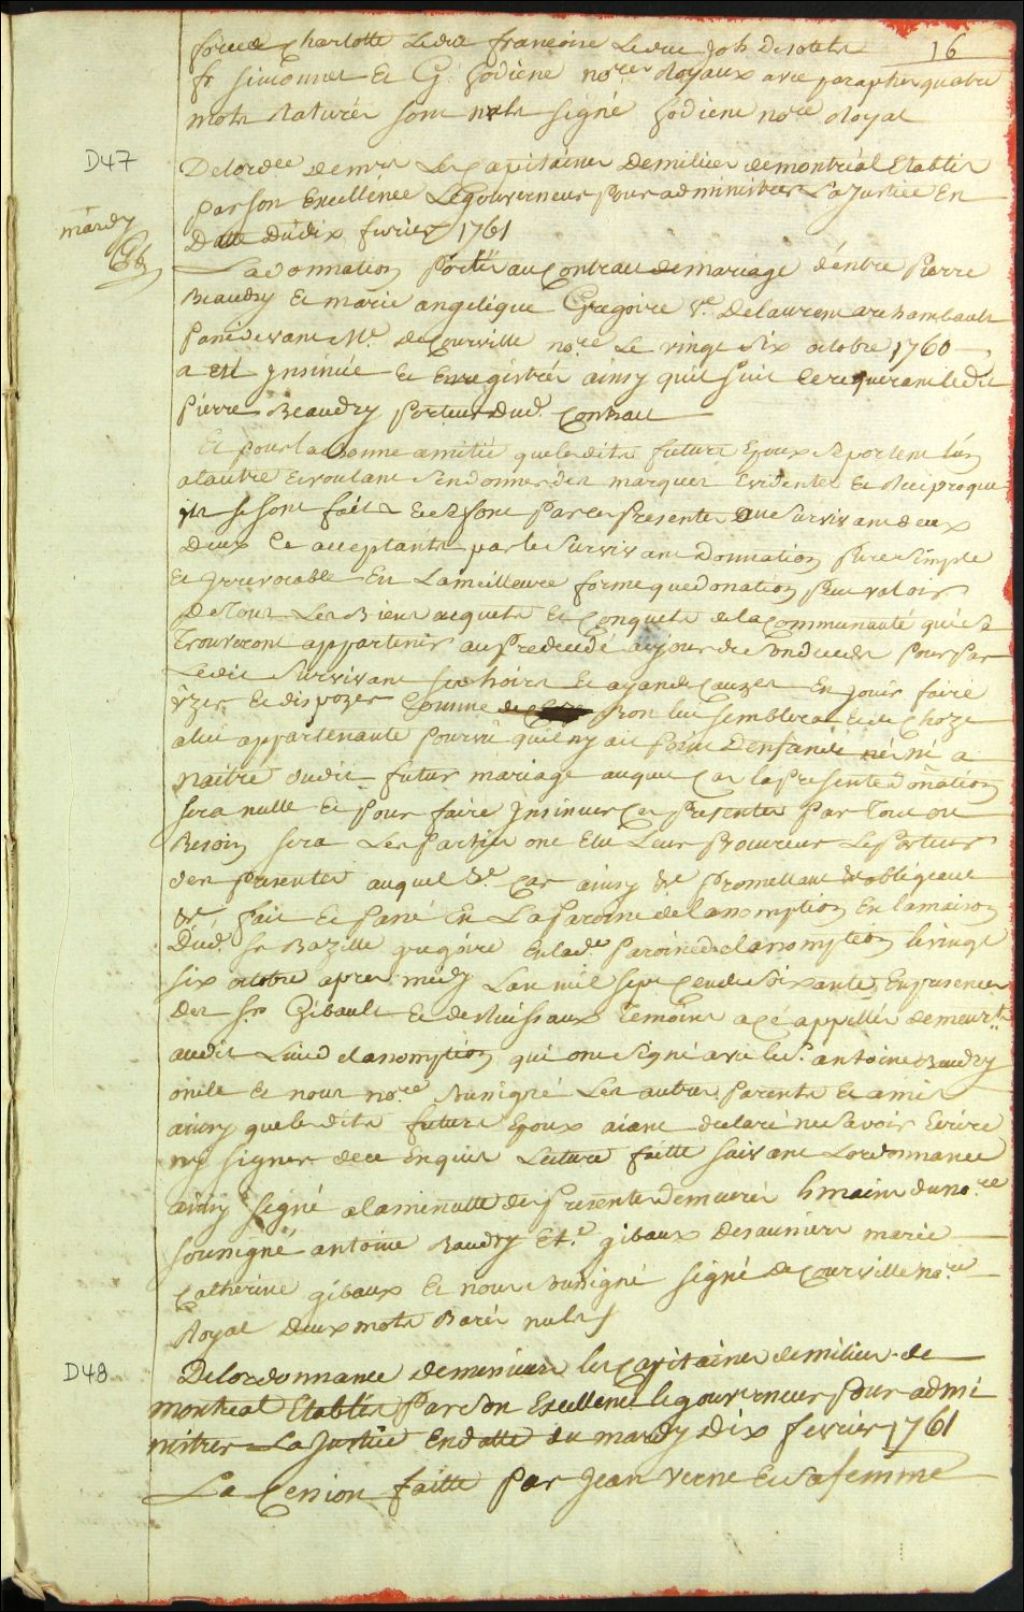 16
Charlotte Leduc françoise Leduc Joh Desotels
fr simonnet Et G: hodiene no.res Royaux avec paraphes quatre
mots Raturés sont nuls signé hodiene no.re Royal
D47
De lord.ce de m.rs Les Capitaines de milices de montréal Etablis
par son Excellence Le gouverneur pour administrer La Justice En
Datte du dix fevrier 1761
mardy
La donnation Portée au Contract de mariage d'éntre Pierre
Beaudry Et marie angelique Gregoire V.e De laurent archambault
Passé devant M.e de Courville no.re Le vingt six octobre 1760
a Eté ynsinuée Et Enregistrée ainsy quil suit Ce requerant ledit
Pierre Beaudry Porteur dud. Contract
Et pour la bonne amitié que lesdits futurs Epoux se portent lún
a lautre Et voulant sen donner des marques Evidentes Et Reciproque
ils se sont faits Et se font Par ces Presentes au survivant deux
deux Ce acceptants par le survivant donnation Pure simple
Et yrrevocable En La meilleure forme que donation Peut valoir
de Tous Les Biens acquets Et Conquets de la Communauté qui se
Trouveront appartenir au Predecedé au jour de son deceds Pour Par
Ledit survivant ses hoirs Et ayands Causes En jouir faire
üzer Et dispozer Comme Bon luy semblera Et de Choze
a luy appartenante Pourvû quil ny ait Point D'enfants né ni a
naitre dudit futur mariage auquel Cas la Presente donation
sera nulle Et Pour faire ynsinuer Ces Presentes Par Tout ou
Besoin sera Les Parties ont Elu Leur Procureur Le Porteur
des Presentes auquel &c. Car ainsy &c Promettant &c obligeant
&c. fait Et Passé En La Paroisse de lassomption En la maison
Dud. sr Bazille gregoire En lad.e Paroisse de lassomption le vingt
six octobre apres midy Lan mil sept Cents soixante En presence
Des srs Gibault Et des Ruissaux Temoins a ce appellés demeur.ts
audit Lieu de lassomption qui ont signé avec le s. antoine Baudry
oncle Et nous no.re sousigné Les autres Parents Et amis
ainsy que lesdits futurs Epoux aiant declaré ne savoir Ecrire
ny signer de ce Enquis Lecture faitte suivant Lordonnance
ainsy signé a la minutte des Presentes demeurée Es mains du no.re
soussigné antoine Baudry Et.e gibaux Desauniers marie
Catherine gibaux Et nous sousigné signé de Courville no.re
Royal deux mots Barés nuls
D48
De lordonnance de messieurs les Capitaines de milices de
montreal Etablis Par son Excellence le gouverneur Pour admi
nistrer La Justice En datte du mardy dix fevrier 1761
La Cession faitte Par Jean verne Et sa femme